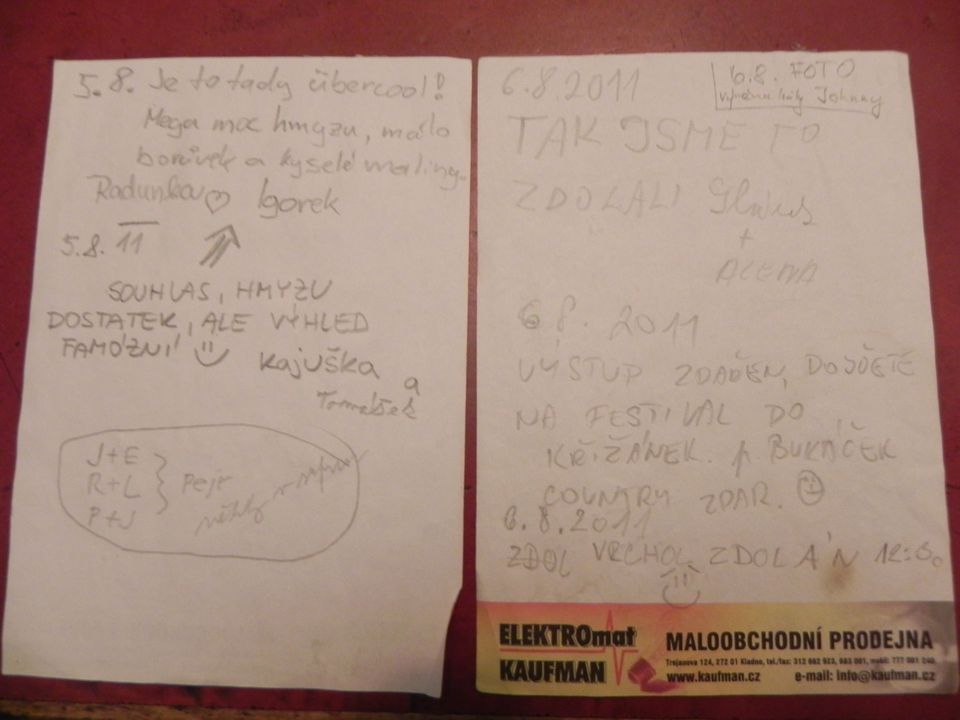 5.8. Je to tady übercool!
Mega moc hmyzu, málo
borůvek a kyselé maliny.
Radunka ♡ Igorek
5.8. 11
SOUHLAS, HMYZU
DOSTATEK, ALE VÝHLED
FAMÓZNÍ
Kajuška
a
Tomášek
J+E
R+L
P+J
6.8.2011
6.8. FOTO
Johnny
TAK JSME TO
ZDOLALI
+
ALENA
6.8. 2011
VÝSTUP ZDAŘEN, DOJDĚTE
NA FESTIVAL DO
KŘIŽÁNEK. p. BUKÁČEK
COUNTRY ZDAR.
6.8.2011
ZDOL VRCHOL ZDOLÁN
ELEKTROmat
KAUFMAN
MALOOBCHODNÍ PRODEJNA
Trojanova 124, 272 01 Kladno, tel./fax: 312 662 923, 683 001, mobil: 777 001 240
www.kaufman.cz e-mail: info@kaufman.cz